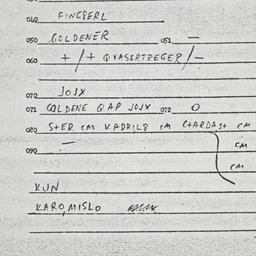 040 FINGPERL
050 GOLDENER 051 —
060 + / + QVASERTREGER / —
070 JOJX
071 GOLDENE GAP JOJX 072 O
080 STER CM KADRIL8 CM CTARDASH CM
090 — CM
CM
KUN
KARO, MISLO